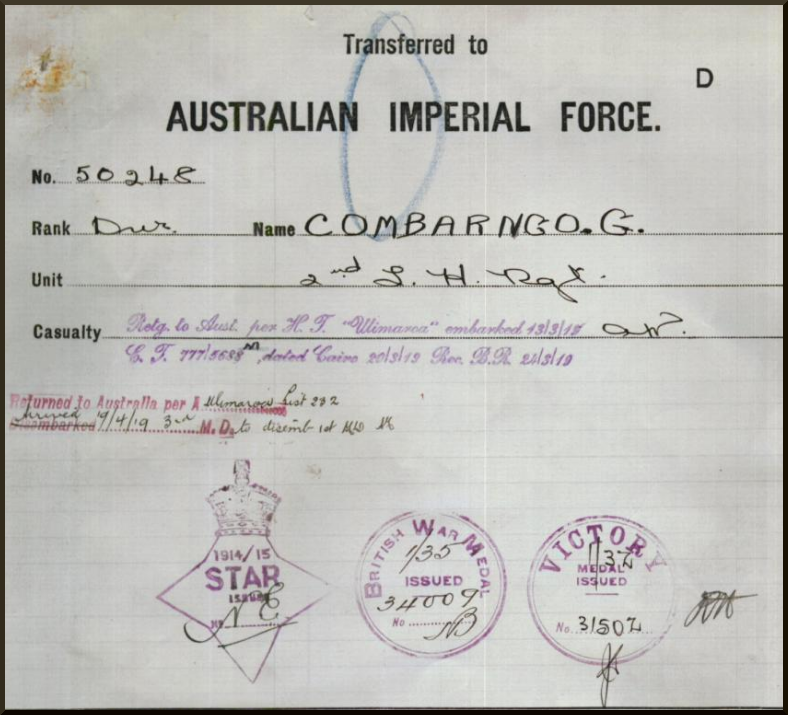 Transferred to
D
AUSTRALIAN IMPERIAL FORCE.
No. 50248
Rank Dvr. Name COMBARNGO. G.
Unit 2nd L. H. Rgt.
Casualty Retg. to Aust. per H. T. "Ulimaroa" embarked 13/3/19
C. F. 777/5688, dated Cairo 20/3/19 Rec. B.R. 24/3/19
Returned to Australia per A Ulimaroa List 282
Arrived Disembarked 19/4/19 3rd M. D. to disemb 1st MD
1914/15
STAR
ISSUED
No N E
BRITISH WAR MEDAL
1/35
ISSUED
34009
No
VICTORY
1/32
MEDAL
ISSUED
No. 31502